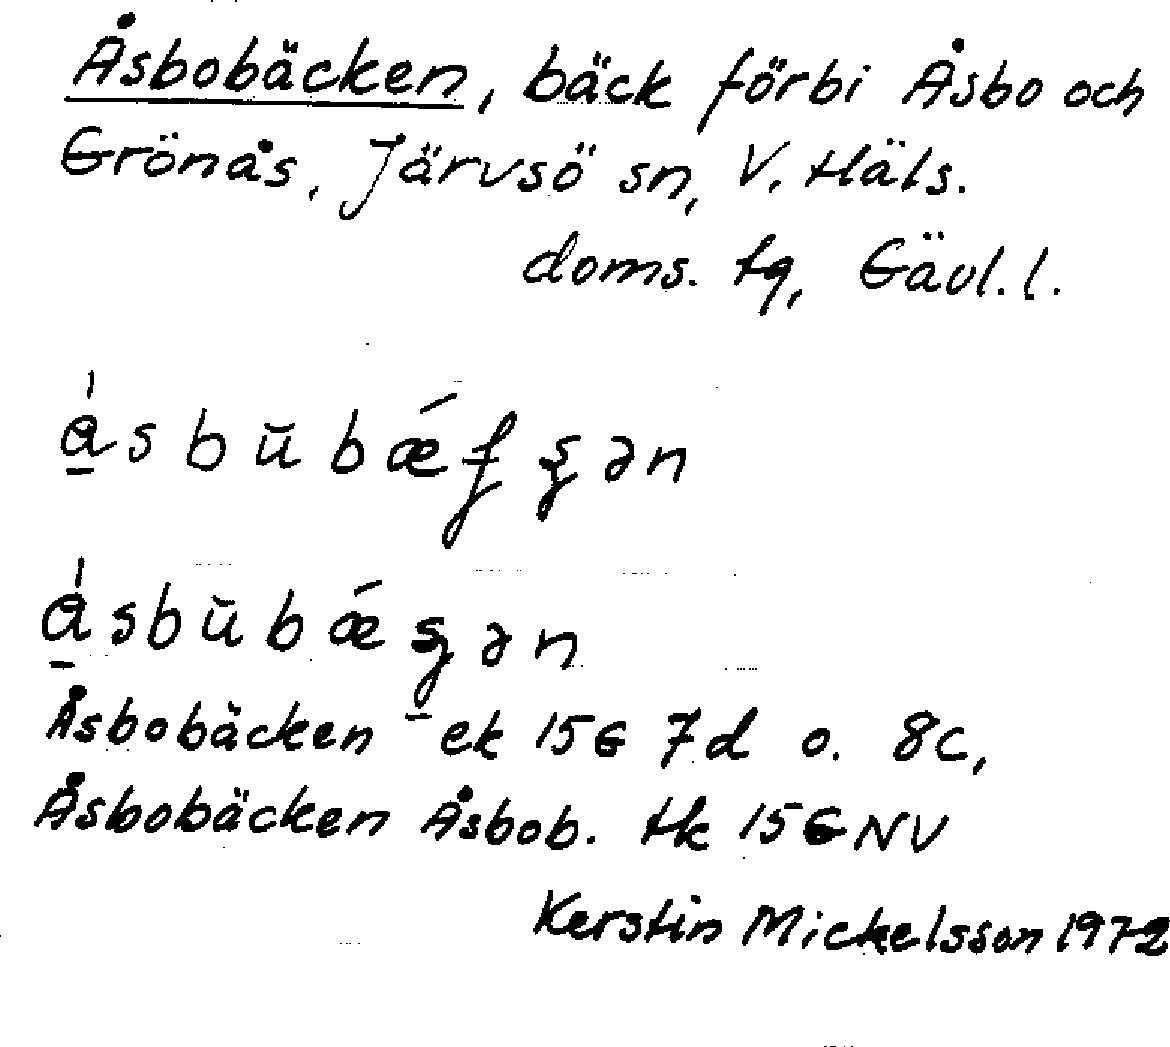 Åsbobäcken, bäck förbi Åsbo och
Grönås, Järvsö sn, V. Häls.
doms. tg, Gävl. l.
Åsbobäcken ek 15G 7d o. 8c,
Åsbobäcken Åsbob. tk 15G NV
Kerstin Mickelsson 1972